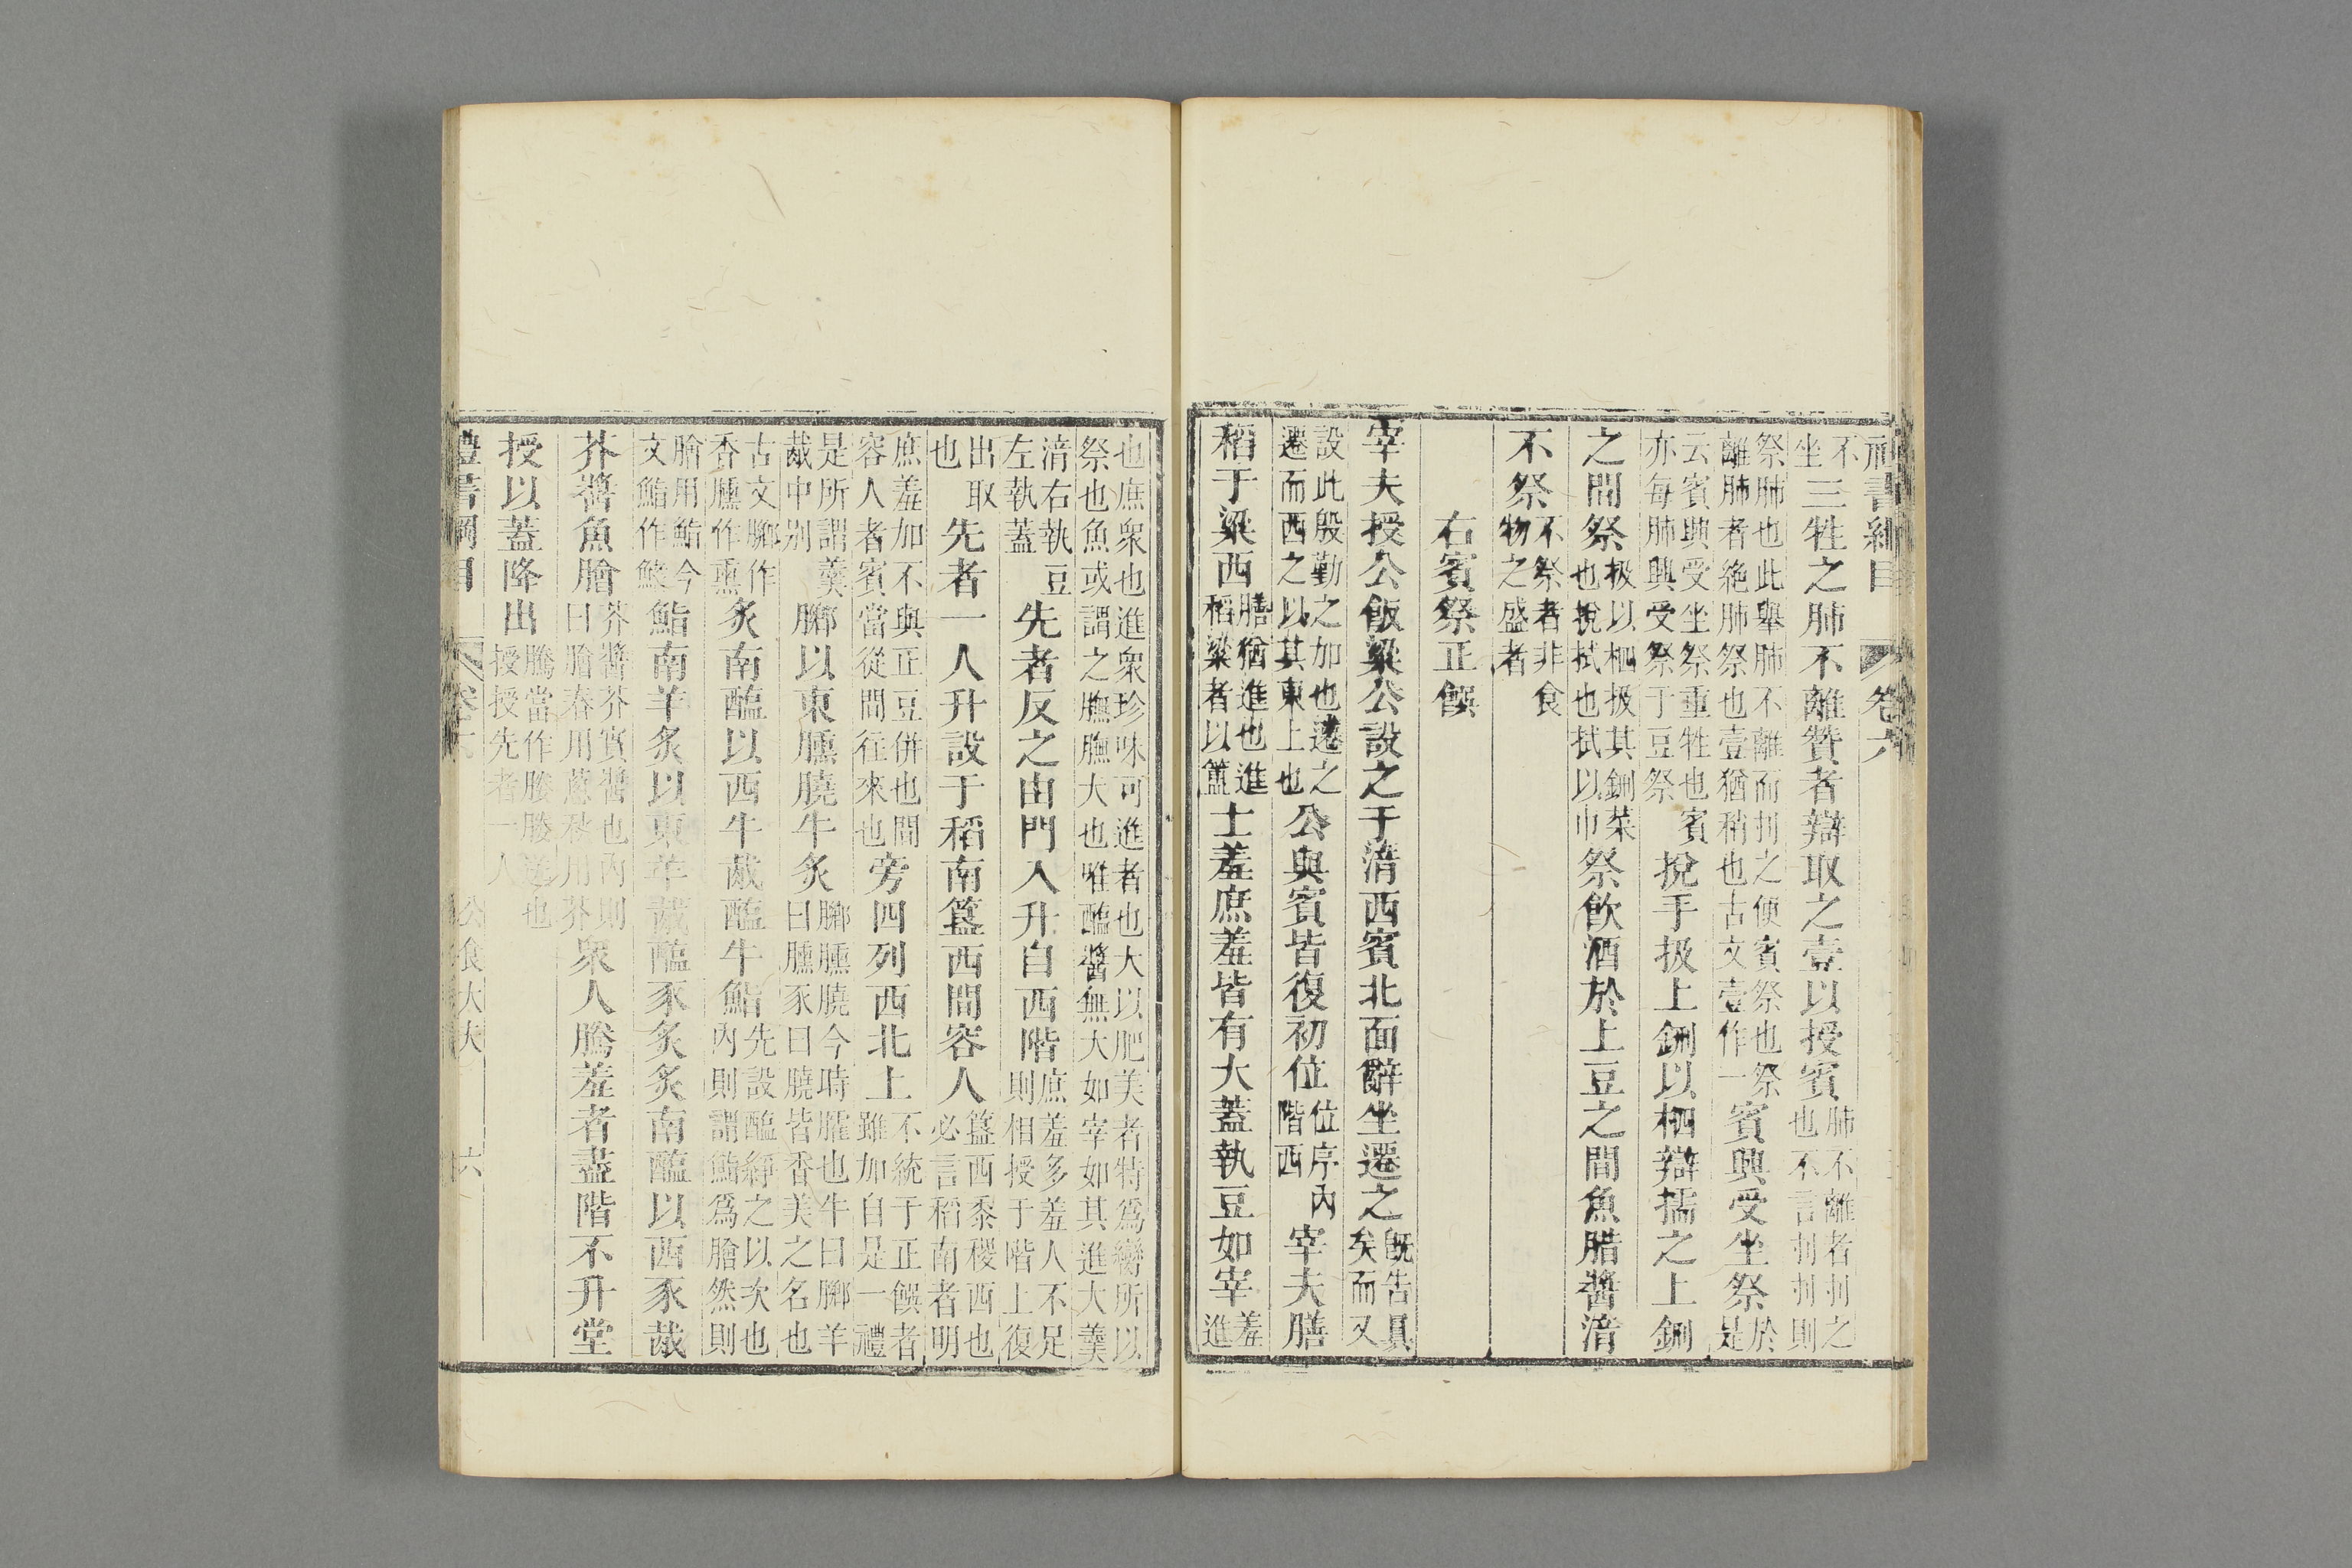 禮書綱目 卷六
不坐三牲之肺不離贊者辯取之壹以授賓肺不離者刌之也不言刌刌則
祭肺也此舉肺不離而刌之便賓祭也祭離肺者絶肺祭也壹猶稍也古文壹作一賓興受坐祭於是
云賓興受坐祭重牲也賓亦每肺興受祭于豆祭挩手扱上鉶以柶辯擩之上鉶
之間祭扱以柶扱其鉶菜也挩拭也拭以巾祭飮酒於上豆之間魚腊醬湆
不祭不祭者非食物之盛者
右賓祭正饌
宰夫授公飯粱公設之于湆西賓北面辭坐遷之旣告具矣而又
設此殷勤之加也遷之遷而西之以其東上也公與賓皆復初位位序內階西宰夫膳
稻于粱西膳猶進也進稻粱者以簠士羞庶羞皆有大蓋執豆如宰羞進
也庶衆也進衆珍味可進者也大以肥美者特爲臠所以祭也魚或謂之膴膴大也唯醢醬無大如宰如其進大羹
湆右執豆左執蓋先者反之由門入升自西階庶羞多羞人不足則相授于階上復
出取也先者一人升設于稻南簋西間容人簋西黍稷西也必言稻南者明
庶羞加不與正豆併也間容人者賓當從間往來也旁四列西北上不統于正饌者雖加自是一禮
是所謂羹胾中别膷以東臐膮牛炙膷臐膮今時臛也牛曰膷羊曰臐豕曰膮皆香美之名也
古文膷作香臐作熏炙南醢以西牛胾醢牛鮨先設醢綪之以次也內則謂鮨爲膾然則
膾用鮨今文鮨作鰭鮨南羊炙以東羊胾醢豕炙炙南醢以西豕胾
芥醬魚膾芥醬芥實醬也內則曰膾春用葱秋用芥衆人騰羞者盡階不升堂
授以蓋降出騰當作媵媵送也授授先者一人
禮書綱目 卷六 公食大夫 六